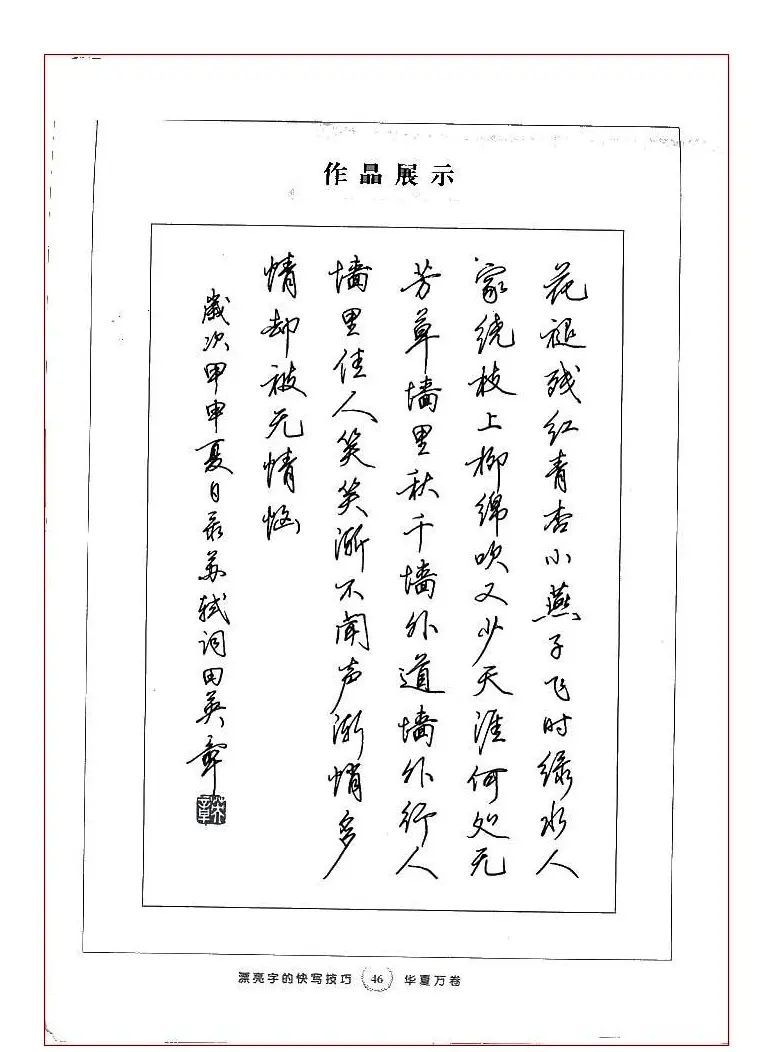 作品展示
花褪残红青杏小燕子飞时绿水人
家绕枝上柳绵吹又少天涯何处无
芳草墙里秋千墙外道墙外行人
墙里佳人笑笑渐不闻声渐悄多
情却被无情恼
歲次甲申夏日录苏轼词田英章
英章
漂亮字的快写技巧 46 华夏万卷